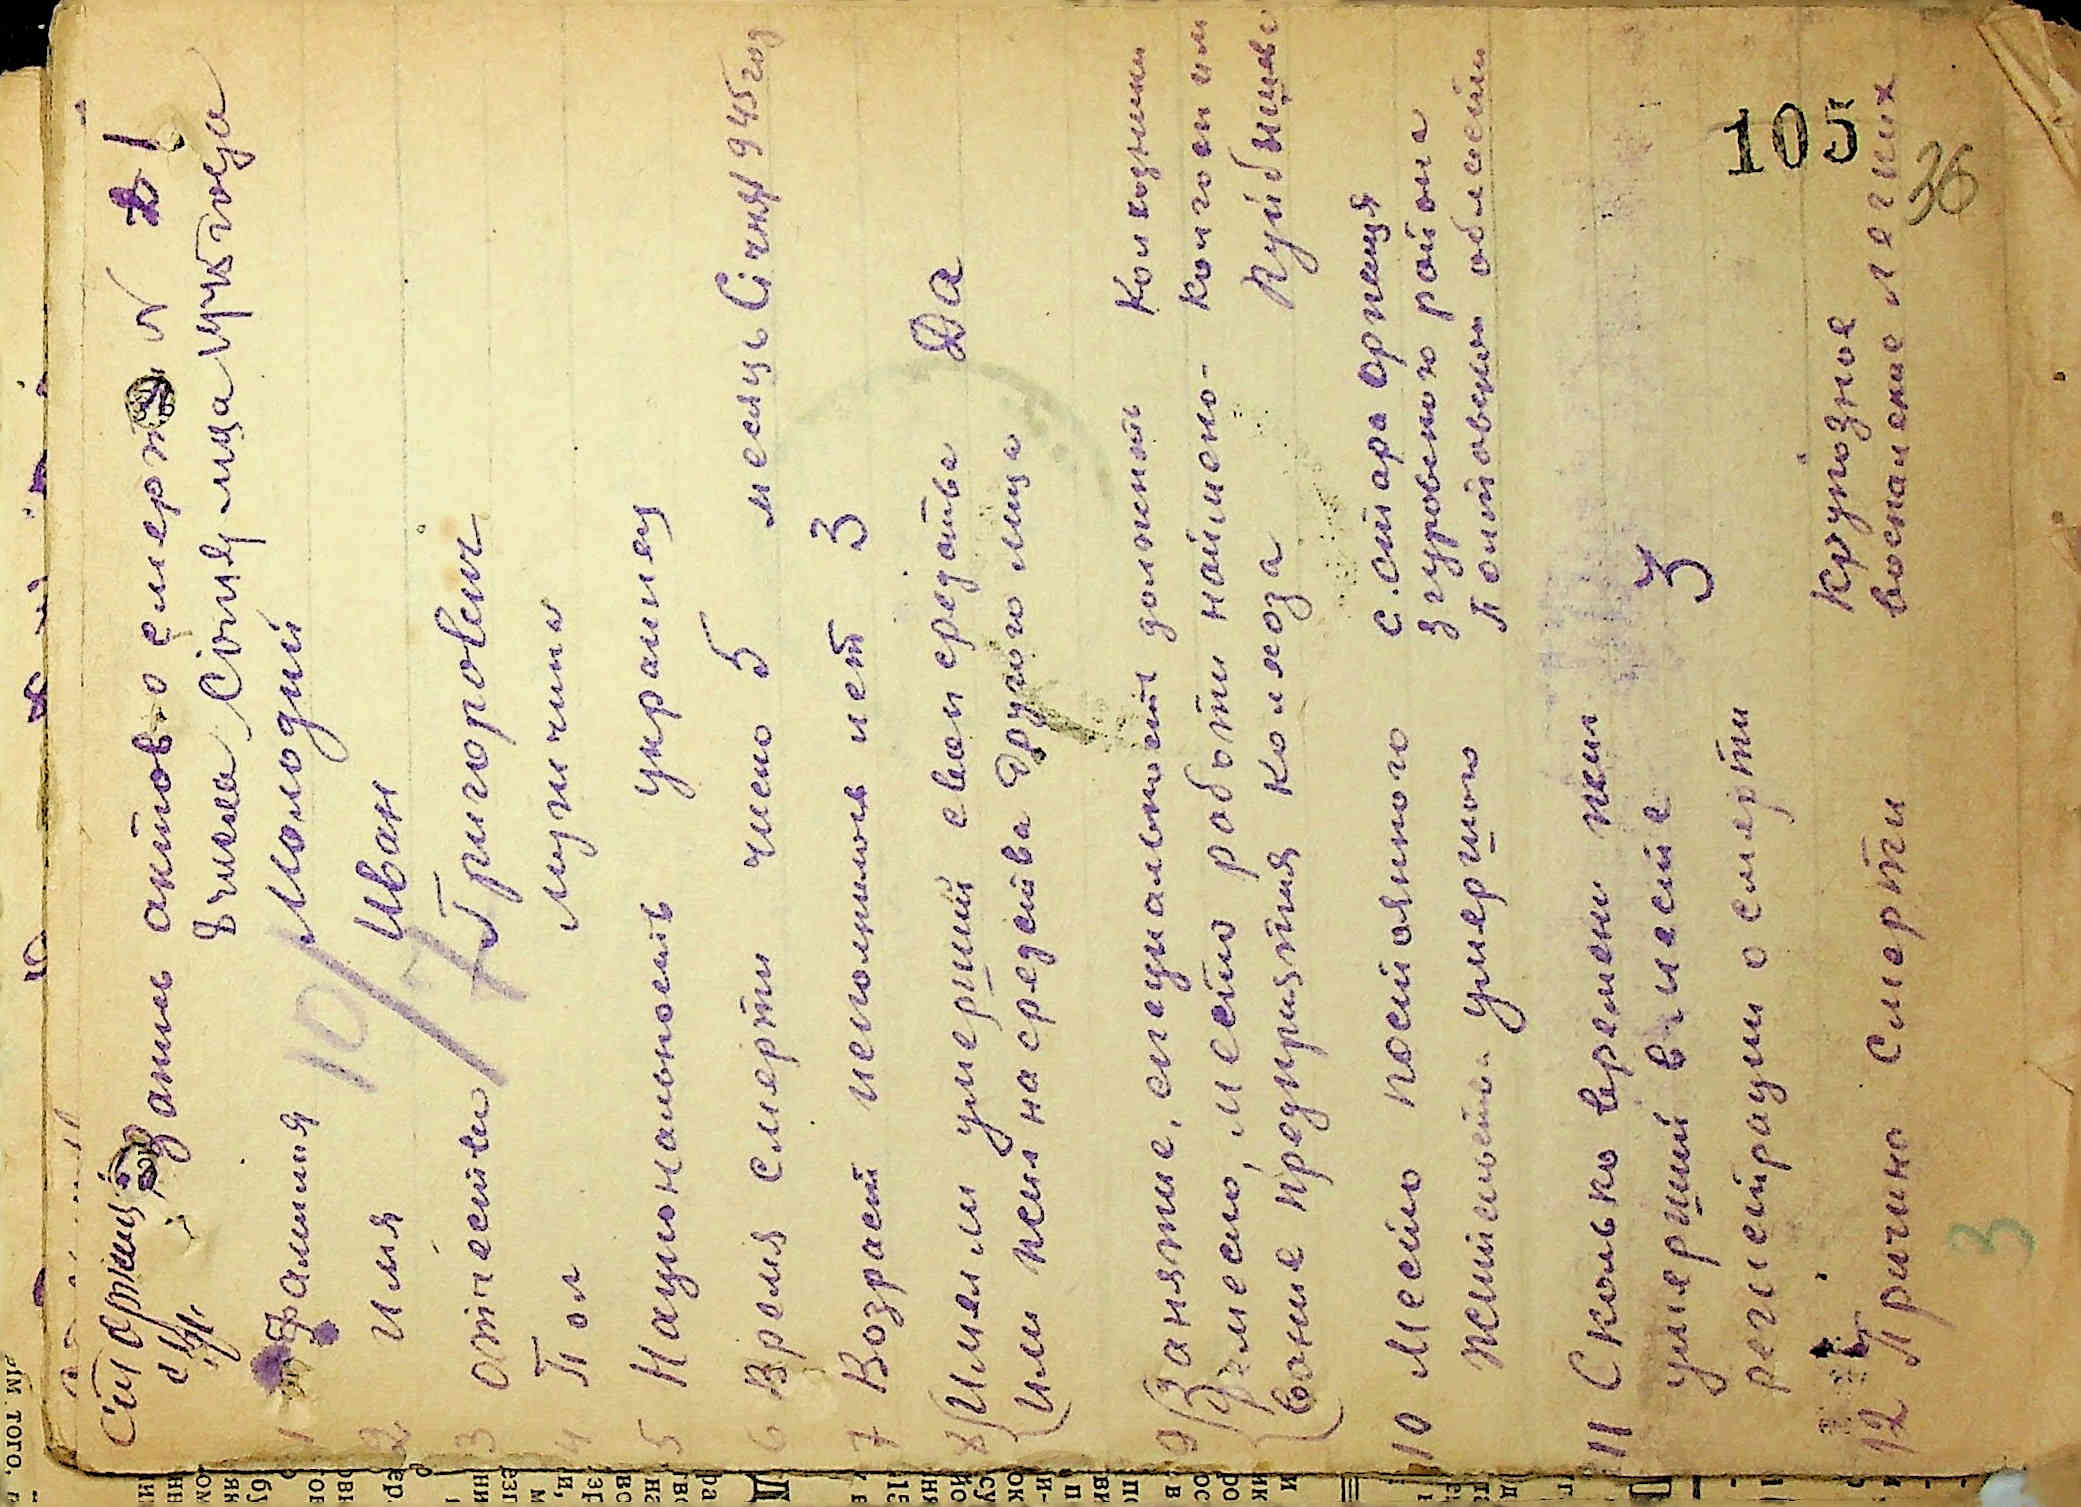 Стар Оржиця
с/р
Запись актов о смерти № 1
8 числа Січня м-ца 1945 года
1 Фамилия Молодий
10/7
2 Имя Иван
3 Отчество Григорович
4 Пол мужчина
5 Национальность украинец
6 Время смерти число 5 месяць Січня 1945 год
7 Возраст исполнилось лет 3
8 Имел ли умерший свои средства Да
или жил на средства другого лица
9 Занятие, специальност должност колхозники
ремесло, место работи наймено- колгосп им
вание предприятия колхоза Куйбишева
10 Место постоянного с. Стара Оржиця
Згуровского района
жительства умершого Полтовской области
11 Сколько времени жил
умерший в месте 3
регистрации о смерти
105
36
12 Причина смерти крупозное
воспаление легких
3